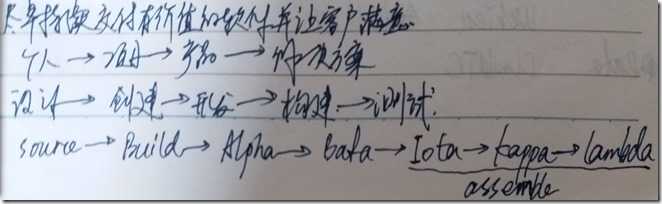 尽早持续交付有价值的软件并让客户满意.
个人→项目→产品→解决方案
设计→创建→开发→构建→测试.
source→Build→Alpha→Bata→Iota→kappa→lambda
assemble